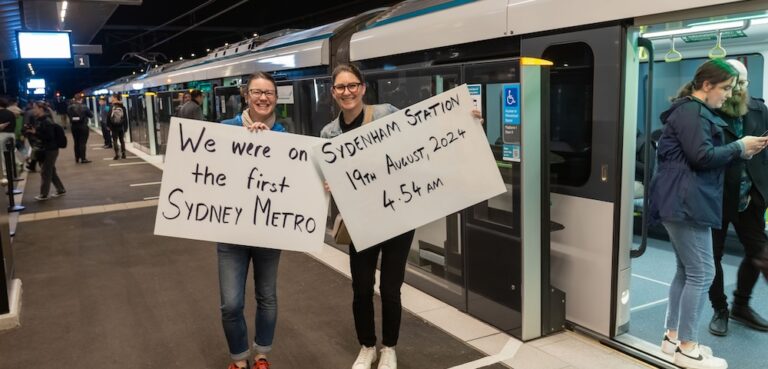 We were on
the first
SYDNEY METRO
SYDENHAM STATION
19TH AUGUST, 2024
4.54 AM
1